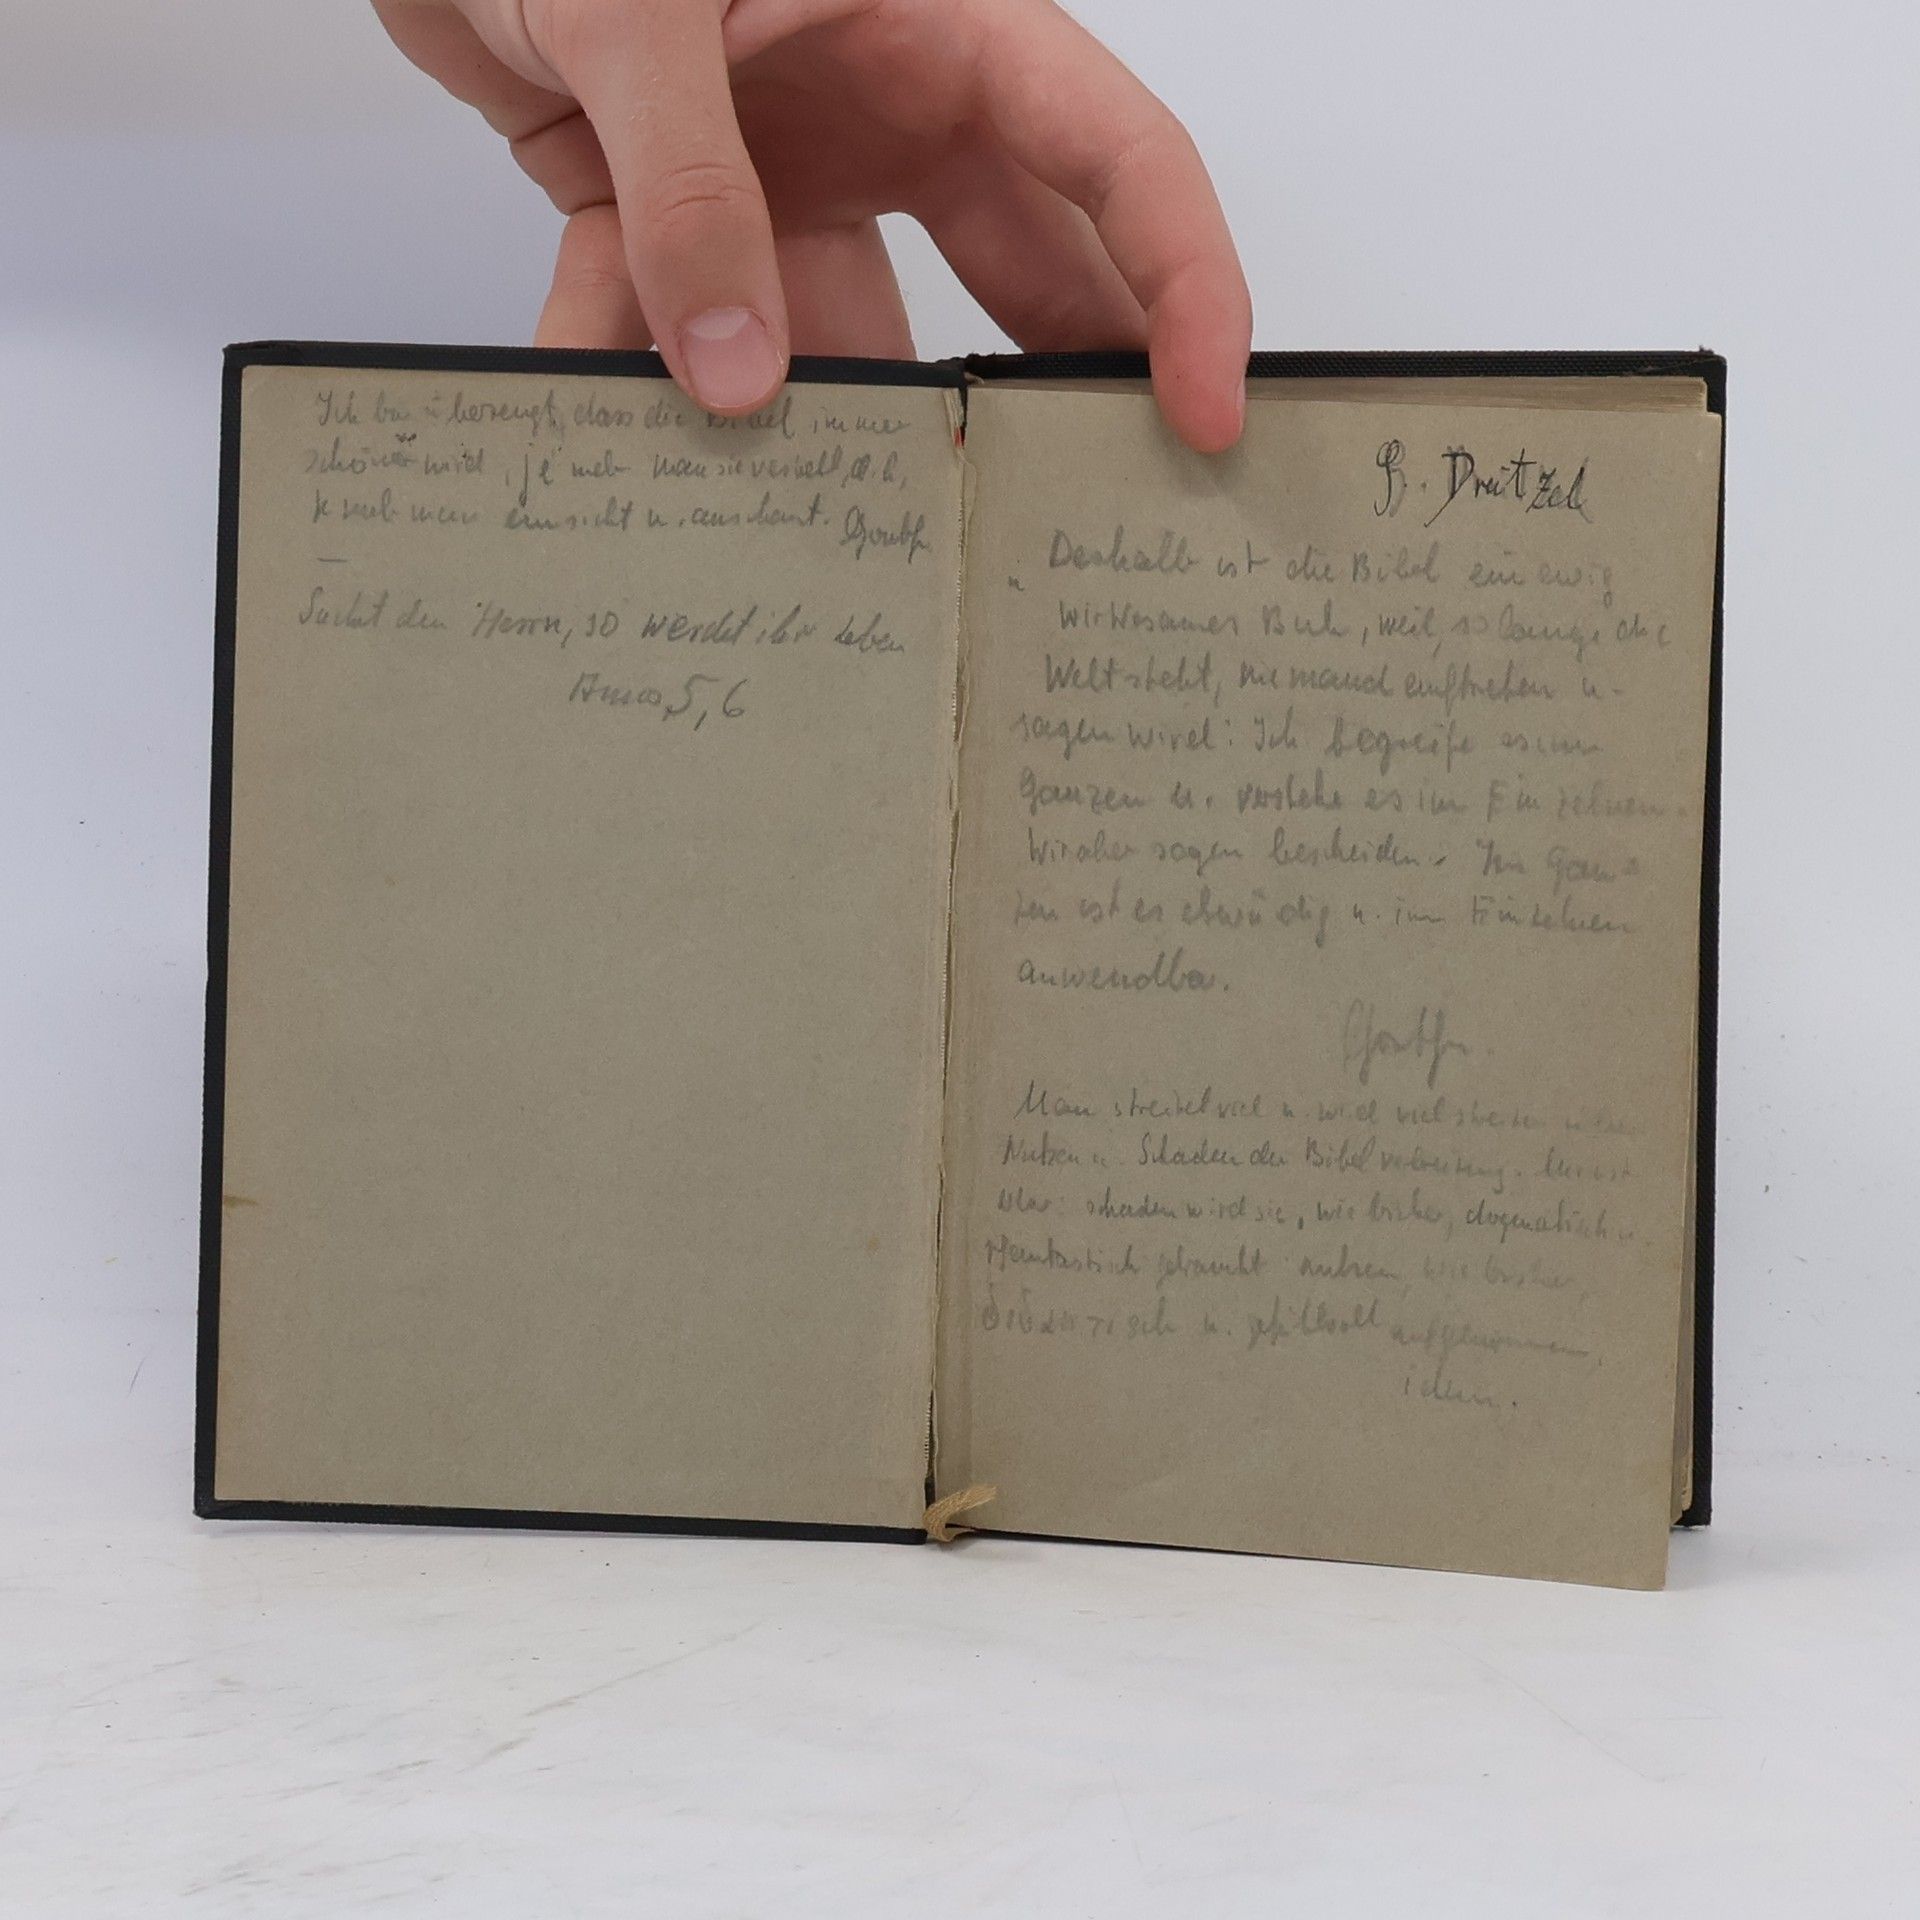 Ich bin überzeugt, dass die Bibel immer
schöner wird, je mehr man sie versteht, d.h.
je mehr man einsieht u. anschaut. Goethe
—
Suchet den Herrn, so werdet ihr leben
Amos, 5, 6
Dreitzel
" Deshalb ist die Bibel ein ewig
wirksames Buch, weil, so lange die
Welt steht, niemand auftreten u.
sagen wird: Ich begreife es im
Ganzen u. verstehe es im Einzelnen.
Wir aber sagen bescheiden: Im Gan=
zen ist es ehrwürdig u. im Einzelnen
anwendbar.
Goethe.
Man streitet viel u. wird viel streiten über
Nutzen u. Schaden der Bibelverbreitung. Mir ist
klar: schaden wird sie, wie bisher, dogmatisch u.
phantastisch gebraucht nutzen, wie bisher,
didaktisch u. gefühlvoll aufgenommen.
idem.